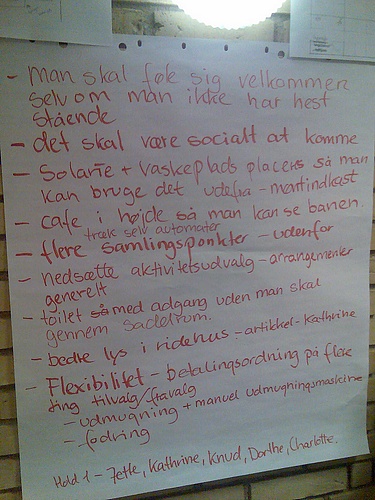 - man skal føle sig velkommen
selv om man ikke har hest
stående
- det skal være socialt at komme
- Solarie + vaskeplads placeres så man
kan bruge det udefra - møntindkast
- cafe i højde så man kan se banen.
træk selv automater
- flere samlingspunkter - udenfor
- nedsætte aktivitetsudvalg - arrangementer
generelt
- toilet så med adgang uden man skal
gennem sadelrum.
- bedre lys i ridehus - artikkel - Kathrine
- Flexibilitet - betalingsordning på flere
ting tilvalg/fravalg
- udmugning + manuel udmugningsmaskine
- fodring
Hold 1 - Jette, Kathrine, Knud, Dorthe, Charlotte.